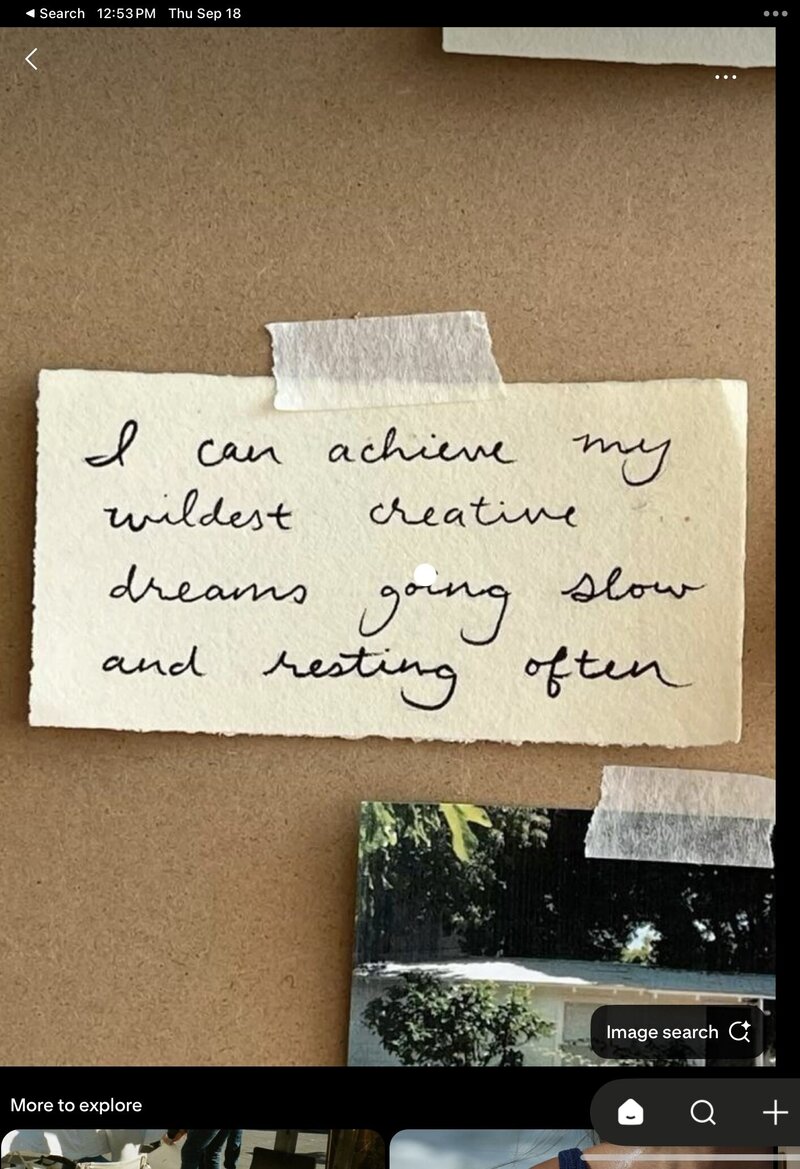 ◀ Search 12:53 PM Thu Sep 18
I can achieve my
wildest creative
dreams going slow
and resting often
Image search
More to explore